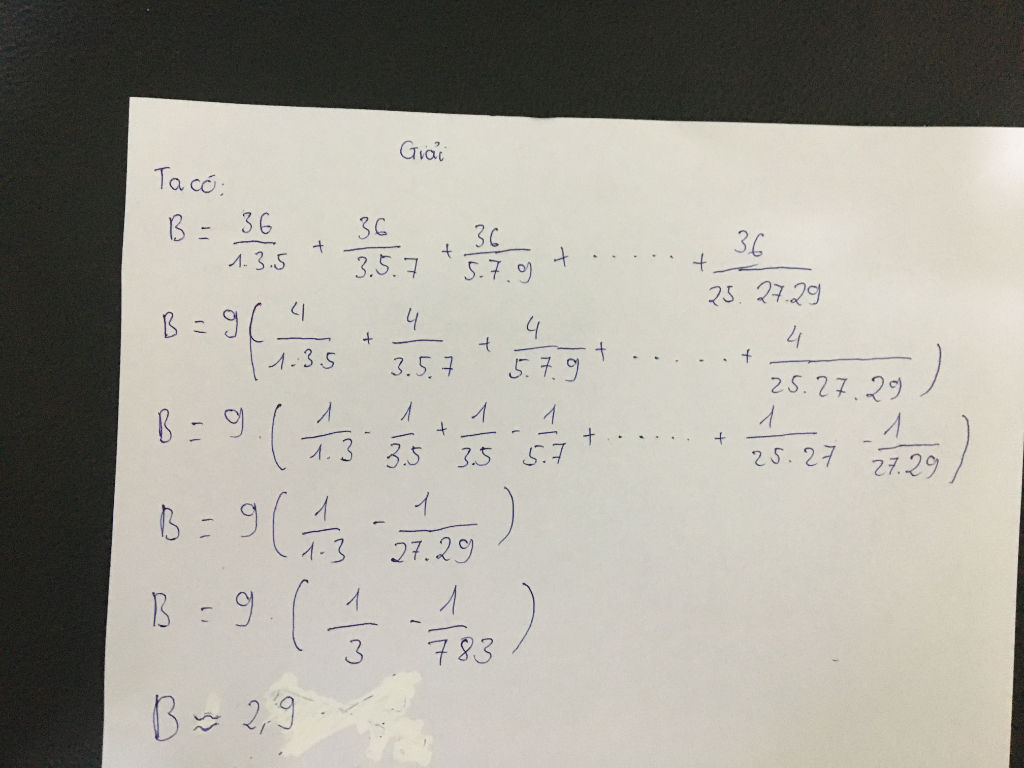 Giải
Ta có:
B = 36/1.3.5 + 36/3.5.7 + 36/5.7.9 + ...... + 36/25.27.29
B = 9(4/1.3.5 + 4/3.5.7 + 4/5.7.9 + ...... + 4/25.27.29)
B = 9.(1/1.3 - 1/3.5 + 1/3.5 - 1/5.7 + ...... + 1/25.27 - 1/27.29)
B = 9(1/1.3 - 1/27.29)
B = 9.(1/3 - 1/783)
B ≈ 2,9